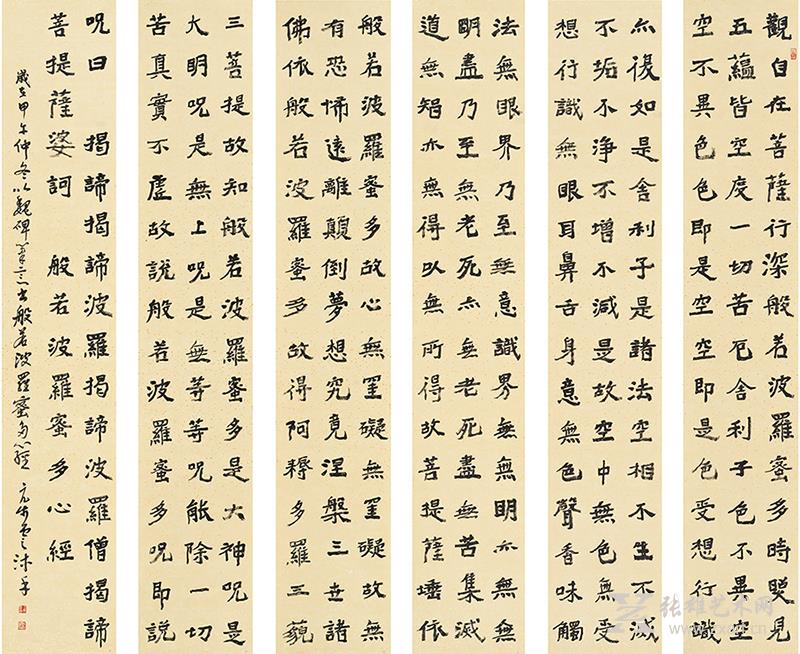 觀自在菩薩行深般若波羅蜜多時照見
五蘊皆空度一切苦厄舍利子色不異空
空不異色色即是空空即是色受想行識
亦復如是舍利子是諸法空相不生不滅
不垢不淨不增不減是故空中無色無受
想行識無眼耳鼻舌身意無色聲香味觸
法無眼界乃至無意識界無無明亦無無
明盡乃至無老死亦無老死盡無苦集滅
道無智亦無得以無所得故菩提薩埵依
般若波羅蜜多故心無罣礙無罣礙故無
有恐怖遠離顛倒夢想究竟涅槃三世諸
佛依般若波羅蜜多故得阿耨多羅三藐
三菩提故知般若波羅蜜多是大神呪是
大明呪是無上呪是無等等呪能除一切
苦真實不虛故說般若波羅蜜多呪即說
呪曰 揭諦揭諦波羅揭諦波羅僧揭諦
菩提薩婆訶 般若波羅蜜多心經
歲在甲午仲冬以魏碑筆意書般若波羅蜜多心經 沐手
张雄艺术网